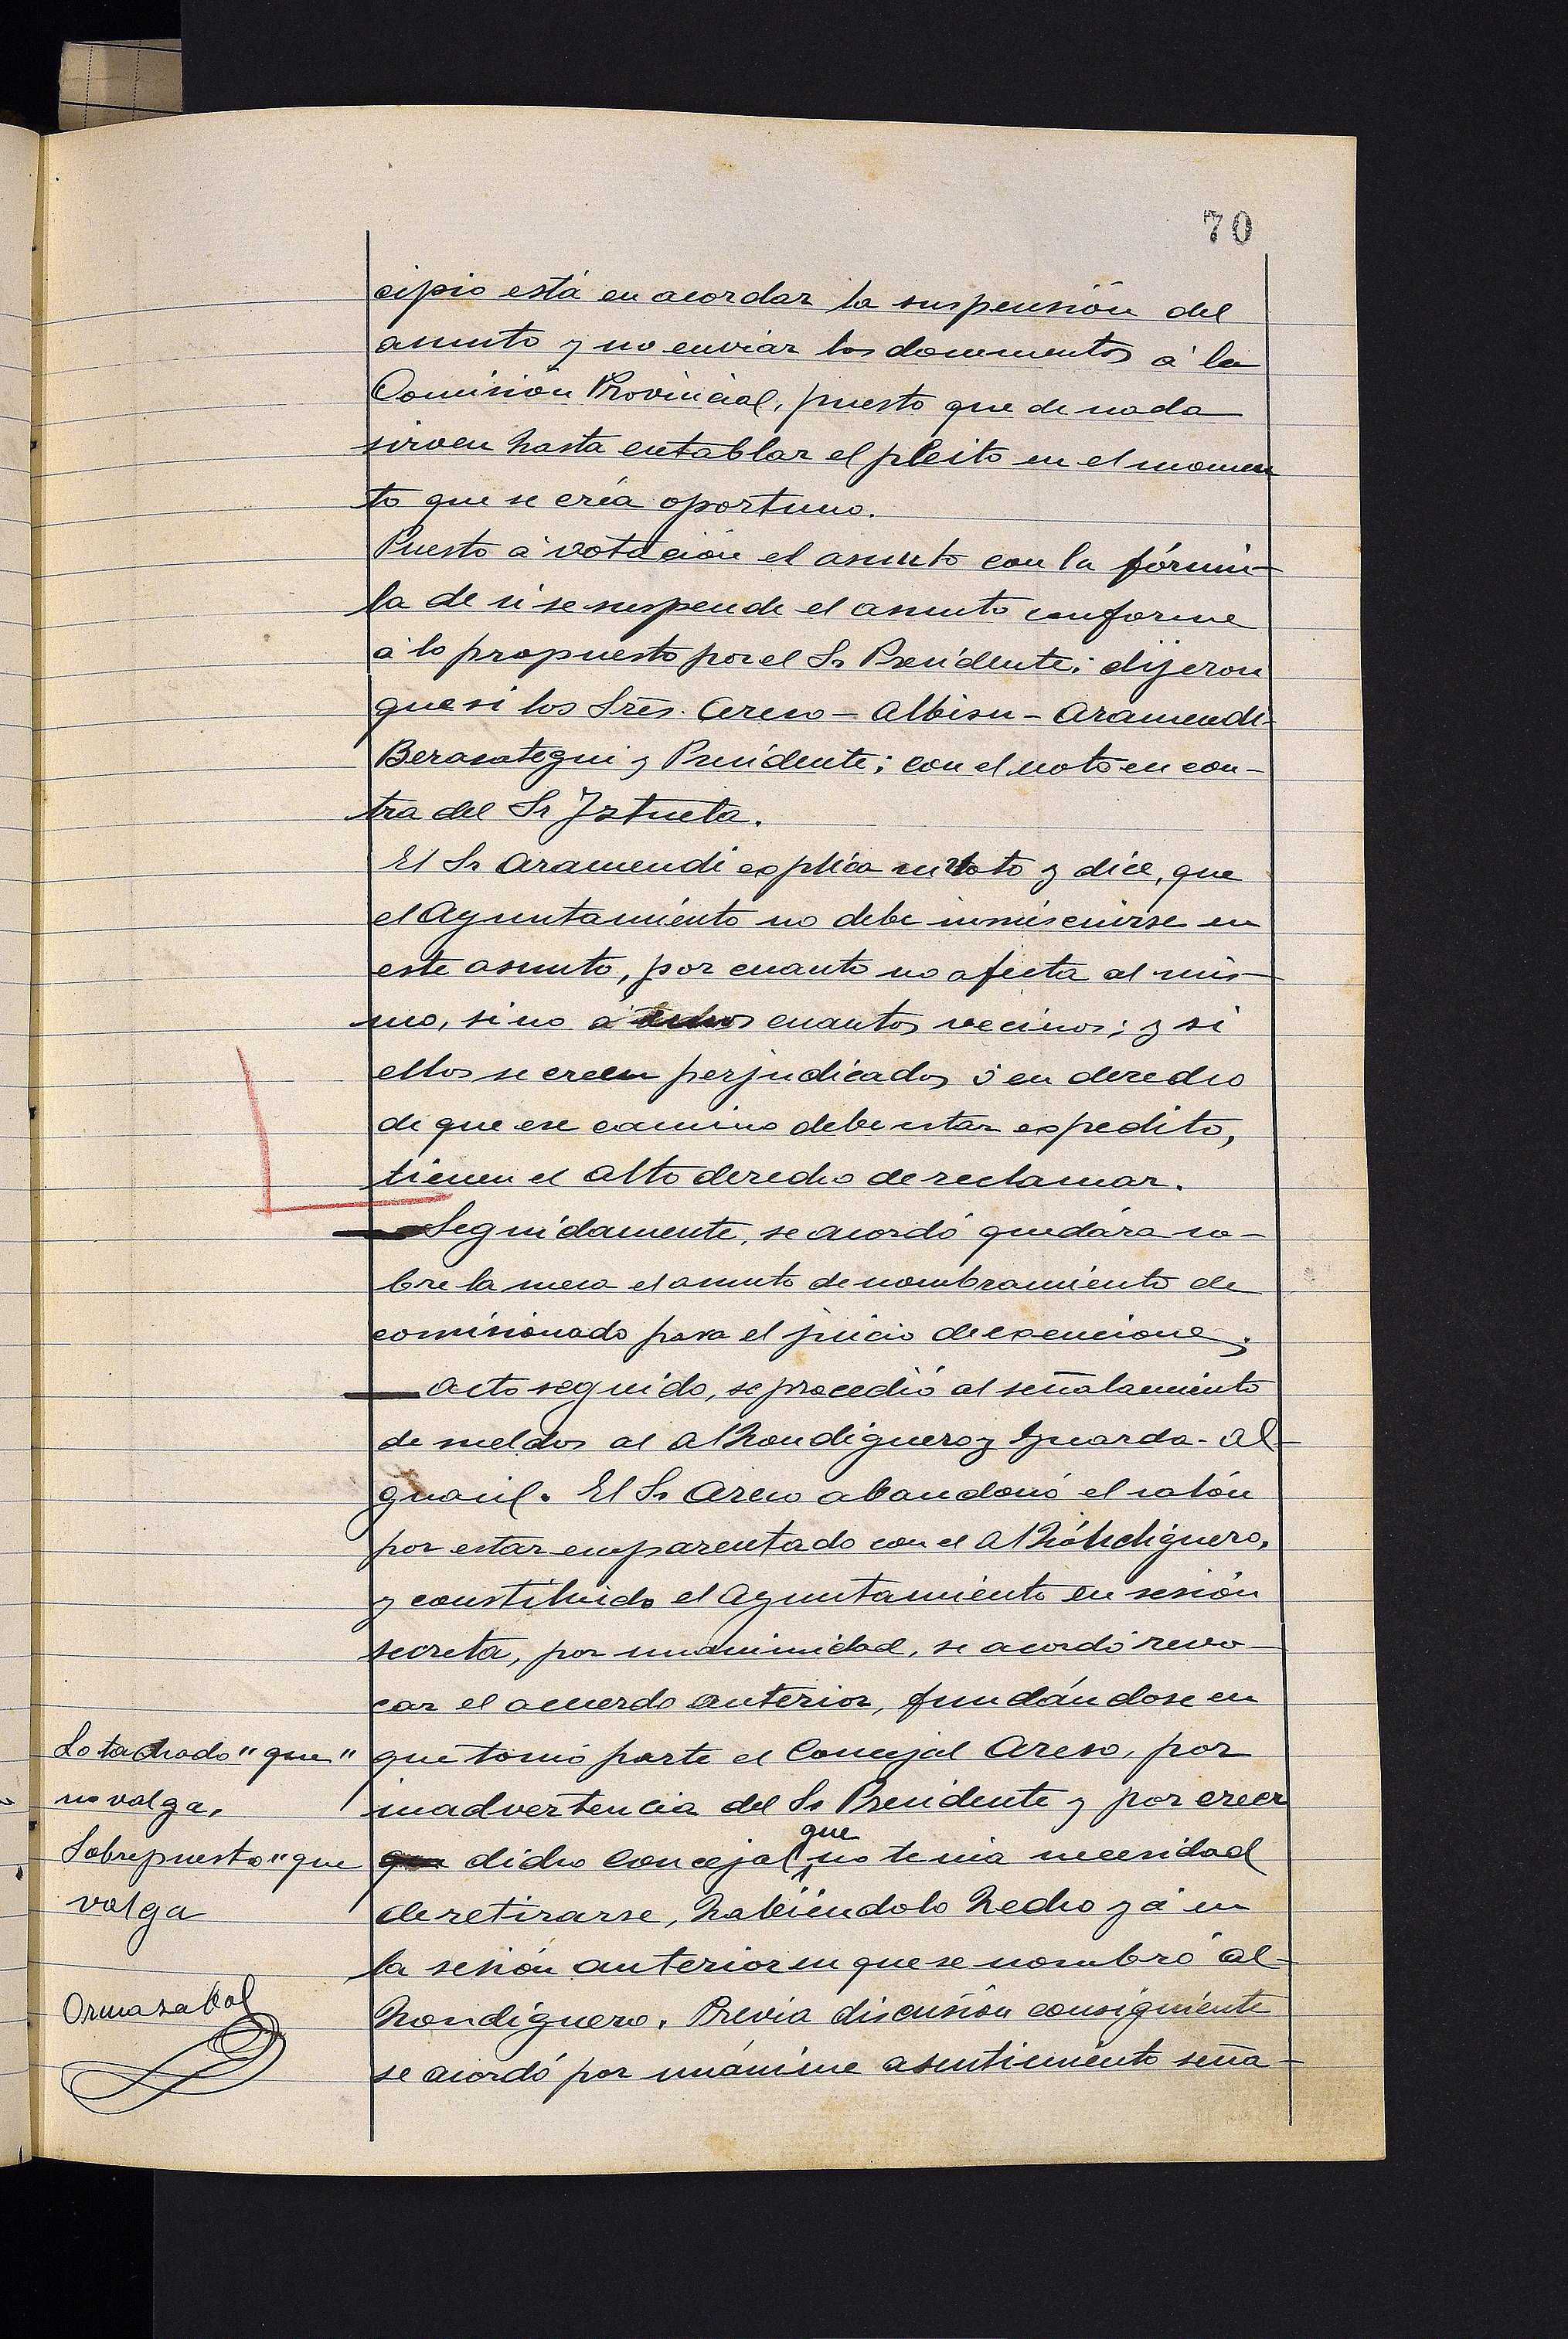 70
cipio está en acordar la suspensión del
asunto y no enviar los documentos á la
Comisión Provincial, puesto que de nada
sirven hasta entablar el pleito en el momen
to que se créa oportuno.
Puesto á votación el asunto con la fórmu-
la de si se suspende el asunto conforme
á lo propuesto por el Sr Presidente; dijeron
que si los Sres. Areso - Albisu - Aramendi-
Berasategui y Presidente; con el voto en con-
tra del Sr Iztueta.
El Sr Aramendi esplica su voto y dice, que
el Ayuntamiento no debe inmiscuirse en
este asunto, por cuanto no afecta al mis-
mo, si no á unos cuantos vecinos; y si
ellos se creen perjudicados ó en derecho
de que ese camino debe estar espedito,
tienen el alto derecho de reclamar.
Seguidamente, se acordó quedára so-
bre la mesa el asunto de nombramiento de
comisionado para el juicio de exenciones.
Acto seguido, se procedió al señalamiento
de sueldos al Alhondiguero y Guarda-Al-
guacil. El Sr Areso abandonó el salón
por estar emparentado con el Alhóndiguero,
y constituido el Ayuntamiento en sesión
secreta, por unanimidad, se acordó revo-
car el acuerdo anterior, fundándose en
que tomó parte el Concejal Areso, por
inadvertencia del Sr Presidente y por creer
que dicho Concejal que no tenia necesidad
de retirarse, habiéndolo hecho yá en
la sesión anterior en que se nombró al-
hondiguero. Previa discusión consiguiente
se acordó por unánime asentimiento seña-
Lo tachado "que"
no valga,
Sobrepuesto "que
valga
Ormazabal